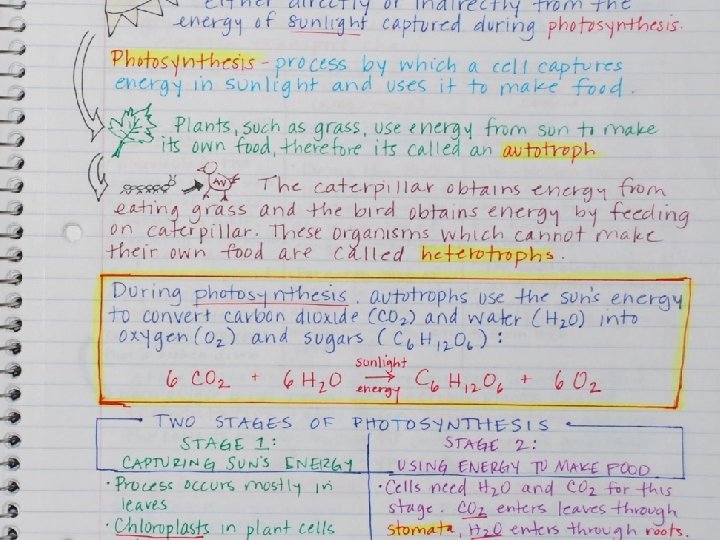 either directly or indirectly from the
energy of sunlight captured during photosynthesis.
Photosynthesis - process by which a cell captures
energy in sunlight and uses it to make food.
Plants, such as grass, use energy from sun to make
its own food, therefore its called an autotroph
The caterpillar obtains energy from
eating grass and the bird obtains energy by feeding
on caterpillar. These organisms which cannot make
their own food are called heterotrophs.
During photosynthesis, autotrophs use the sun's energy
to convert carbon dioxide (CO₂) and water (H₂O) into
oxygen (O₂) and sugars (C₆H₁₂O₆):
sunlight
6 CO₂ + 6 H₂O → C₆H₁₂O₆ + 6 O₂
energy
TWO STAGES OF PHOTOSYNTHESIS
STAGE 1:
CAPTURING SUN'S ENERGY
• Process occurs mostly in
leaves
• Chloroplasts in plant cells
STAGE 2:
USING ENERGY TO MAKE FOOD
• Cells need H₂O and CO₂ for this
stage. CO₂ enters leaves through
stomata, H₂O enters through roots.